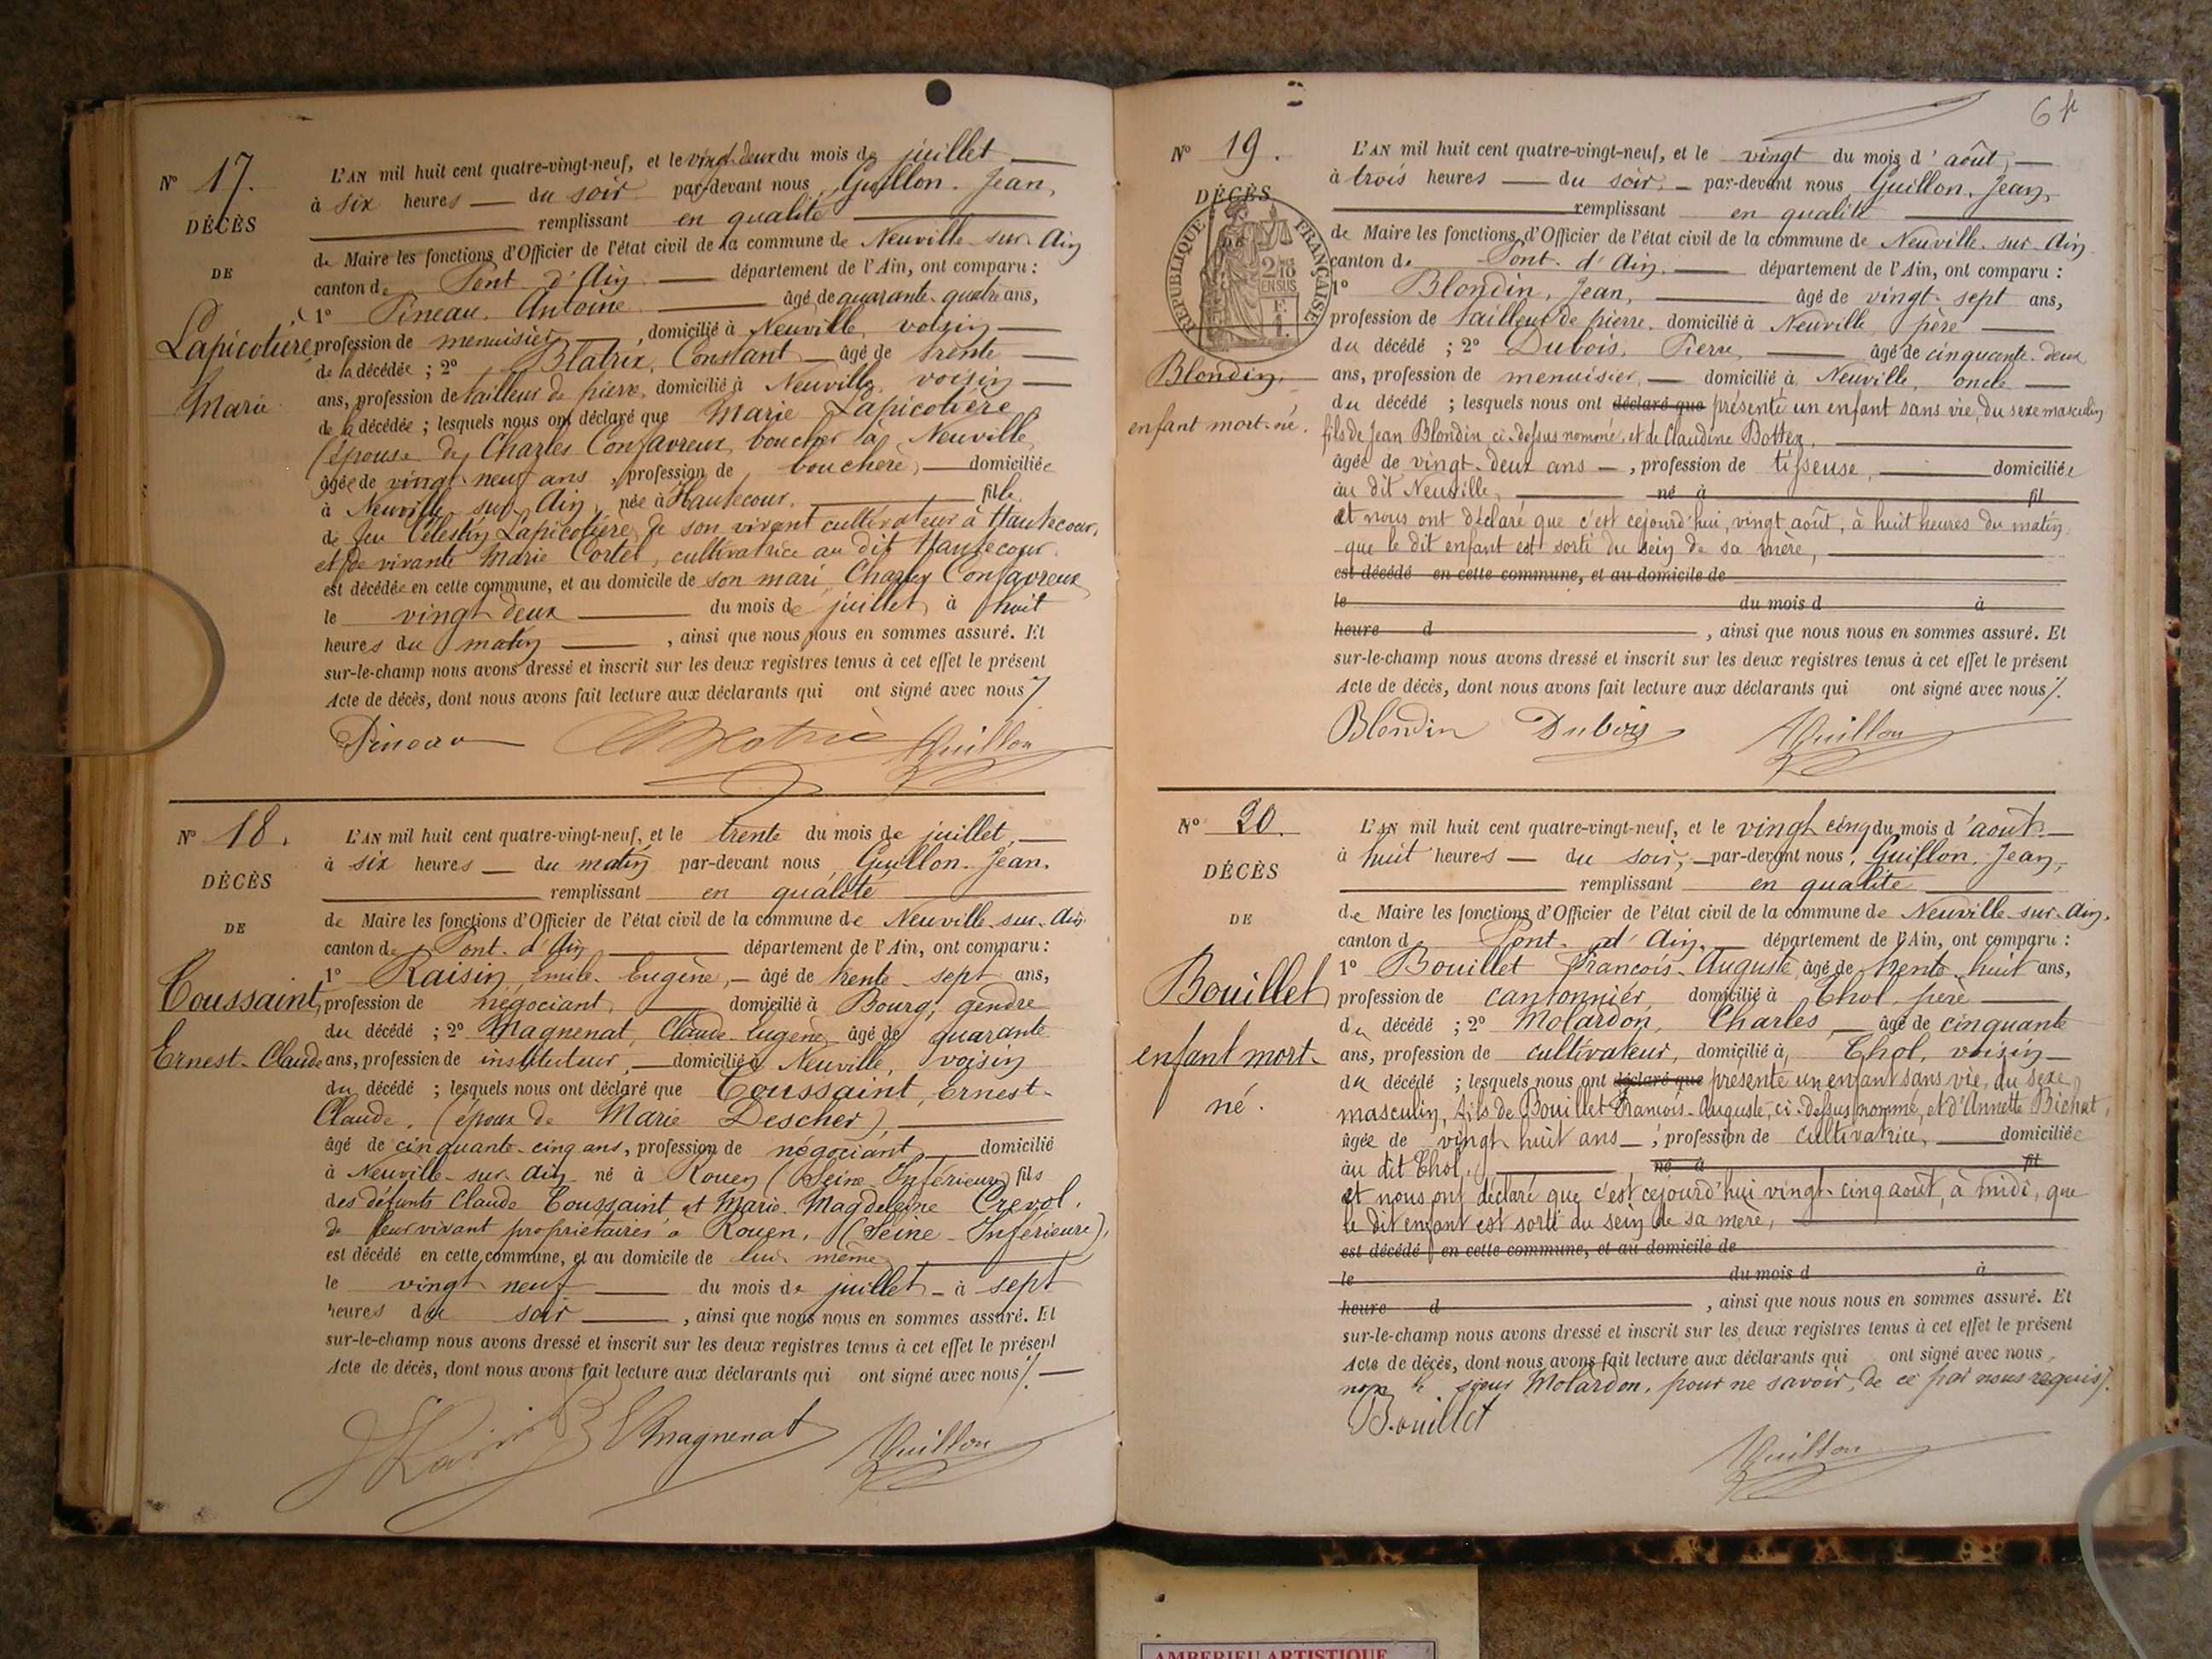 N° 17.
DÉCÈS
DE
Lapicotière
Marie
L'AN mil huit cent quatre-vingt-neuf, et le vingt-deux du mois de juillet
à six heures du soir par-devant nous Guillon Jean,
remplissant en qualité
de Maire les fonctions d'Officier de l'état civil de la commune de Neuville-sur-Ain
canton de Pont d'Ain département de l'Ain, ont comparu :
1° Pineau Antoine âgé de quarante-quatre ans,
profession de menuisier, domicilié à Neuville, voisin
de la décédée ; 2° Blatrix, Constant âgé de trente
ans, profession de tailleur de pierre, domicilié à Neuville, voisin
de la décédée ; lesquels nous ont déclaré que Marie Lapicotière
(épouse de Charles Confavreux, boucher à Neuville
âgée de vingt-neuf ans, profession de bouchère, domiciliée
à Neuville sur Ain, née à Hautecour. fille
de feu Célestin Lapicotière de son vivant cultivateur à Hautecour,
et de vivante Marie Cortel, cultivatrice au dit Hautecour.
est décédée en cette commune, et au domicile de son mari Charles Confavreux
le vingt deux du mois de juillet, à huit
heures du matin, ainsi que nous nous en sommes assuré. Et
sur-le-champ nous avons dressé et inscrit sur les deux registres tenus à cet effet le présent
Acte de décès, dont nous avons fait lecture aux déclarants qui ont signé avec nous
Pineau Blatrix Guillon
N° 18.
DÉCÈS
DE
Toussaint,
Ernest-Claude
L'AN mil huit cent quatre-vingt-neuf, et le trente du mois de juillet,
à six heures du matin par-devant nous Guillon Jean.
remplissant en qualité
de Maire les fonctions d'Officier de l'état civil de la commune de Neuville-sur-Ain
canton de Pont-d'Ain département de l'Ain, ont comparu :
1° Raisin, Émile-Eugène, âgé de trente-sept ans,
profession de négociant, domicilié à Bourg, gendre
du décédé ; 2° Magnenat, Claude-Eugène, âgé de quarante
ans, profession de instituteur, domicilié à Neuville, voisin
du décédé ; lesquels nous ont déclaré que Toussaint, Ernest-
Claude, (époux de Marie Descher),
âgé de cinquante-cinq ans, profession de négociant domicilié
à Neuville-sur-Ain né à Rouen (Seine-Inférieure) fils
des défunts Claude Toussaint et Marie-Magdeleine Crevol,
de leur vivant propriétaires à Rouen, (Seine-Inférieure),
est décédé en cette commune, et au domicile de lui-même
le vingt neuf du mois de juillet à sept
heures du soir, ainsi que nous nous en sommes assuré. Et
sur-le-champ nous avons dressé et inscrit sur les deux registres tenus à cet effet le présent
Acte de décès, dont nous avons fait lecture aux déclarants qui ont signé avec nous
Magnenat Guillon
64
N° 19.
DÉCÈS
RÉPUBLIQUE FRANÇAISE
2/10 EN SUS
Blondin,
enfant mort-né.
L'AN mil huit cent quatre-vingt-neuf, et le vingt du mois d'août,
à trois heures du soir, par-devant nous Guillon, Jean,
remplissant en qualité
de Maire les fonctions d'Officier de l'état civil de la commune de Neuville-sur-Ain
canton de Pont-d'Ain département de l'Ain, ont comparu :
1° Blondin, Jean, âgé de vingt-sept ans,
profession de tailleur de pierre, domicilié à Neuville père
du décédé ; 2° Dubois, Pierre, âgé de cinquante-deux
ans, profession de menuisier, domicilié à Neuville, oncle
du décédé ; lesquels nous ont déclaré que présenté un enfant sans vie, du sexe masculin
fils de Jean Blondin ci-dessus nommé, et de Claudine Bottex,
âgée de vingt-deux ans, profession de tisseuse, domiciliée
au dit Neuville, né à fil
et nous ont déclaré que c'est cejourd'hui, vingt août, à huit heures du matin
que le dit enfant est sorti du sein de sa mère,
est décédé en cette commune, et au domicile de
le du mois d à
heure d, ainsi que nous nous en sommes assuré. Et
sur-le-champ nous avons dressé et inscrit sur les deux registres tenus à cet effet le présent
Acte de décès, dont nous avons fait lecture aux déclarants qui ont signé avec nous
Blondin Dubois Guillon
N° 20.
DÉCÈS
DE
Bouillet
enfant mort-
né.
L'AN mil huit cent quatre-vingt-neuf, et le vingt cinq du mois d'août
à huit heures du soir, par-devant nous, Guillon, Jean,
remplissant en qualité
de Maire les fonctions d'Officier de l'état civil de la commune de Neuville-sur-Ain.
canton de Pont-d'Ain, département de l'Ain, ont comparu :
1° Bouillet François-Auguste, âgé de trente-huit ans,
profession de cantonnier domicilié à Thol, père
du décédé ; 2° Molardon, Charles, âgé de cinquante
ans, profession de cultivateur, domicilié à Thol, voisin
du décédé ; lesquels nous ont déclaré que présenté un enfant sans vie, du sexe
masculin, fils de Bouillet François-Auguste, ci-dessus nommé, et d'Annette Bichat,
âgée de vingt huit ans, profession de cultivatrice, domiciliée
au dit Thol, né à fil
et nous ont déclaré que c'est cejourd'hui vingt-cinq août, à midi, que
le dit enfant est sorti du sein de sa mère,
est décédé en cette commune, et au domicile de
le du mois d à
heure d, ainsi que nous nous en sommes assuré. Et
sur-le-champ nous avons dressé et inscrit sur les deux registres tenus à cet effet le présent
Acte de décès, dont nous avons fait lecture aux déclarants qui ont signé avec nous,
non le sieur Molardon, pour ne savoir, de ce par nous requis.
Bouillet Guillon
AMBERIEU ARTISTIQUE